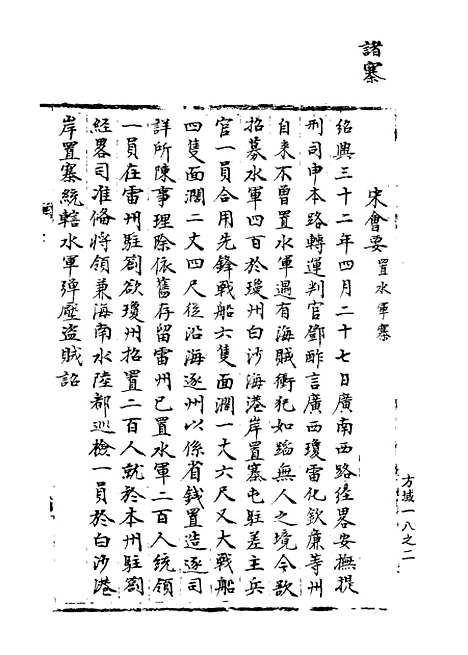 諸寨
宋會要 置水軍寨
紹興三十二年四月二十七日廣南西路經畧安撫提
刑司申本路轉運判官鄧酢言廣西瓊雷化欽廉等州
自来不曾置水軍遇有海賊衝犯如蹈無人之境今欲
招募水軍四百於瓊州白沙海港岸置寨屯駐差主兵
官一員合用先鋒戰船六隻面濶一丈六尺又大戰船
四隻面濶二丈四尺從沿海逐州以係省錢置造逐司
詳所陳事理除依舊存留雷州已置水軍二百人統領
一員在雷州駐劄欲瓊州招置二百人就於本州駐劄
經畧司准俻將領兼海南水陸都巡檢一員於白沙港
岸置寨統轄水軍彈壓盗賊詔
方域一八之二